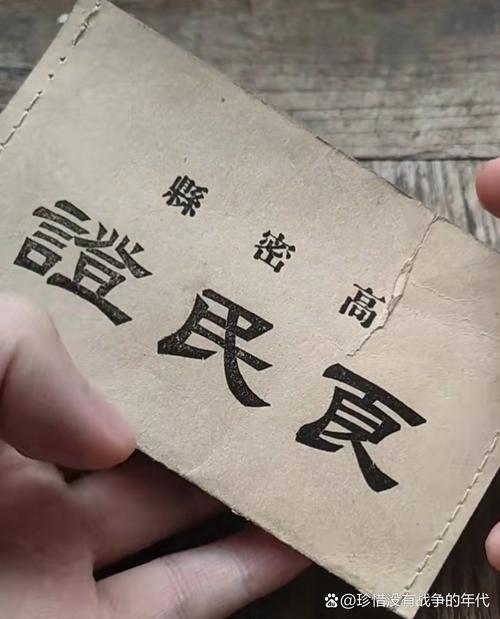 高密縣
良民證
@珍惜没有战争的年代